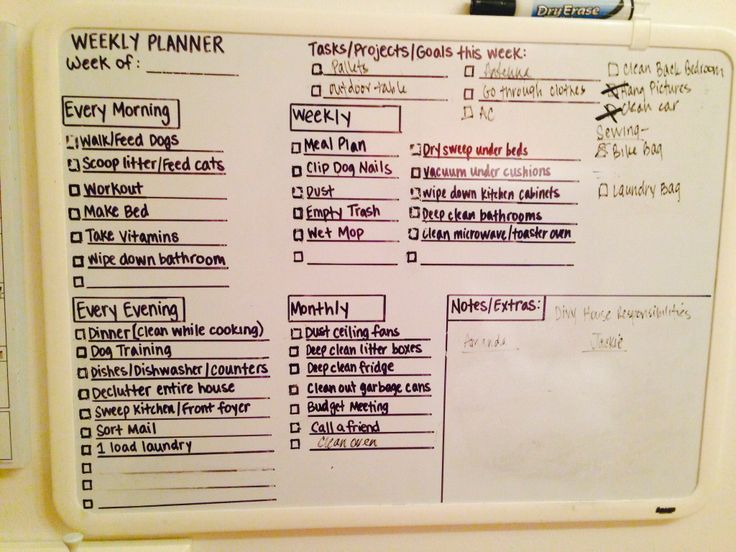 DryErase
WEEKLY PLANNER
Week of:
Tasks/Projects/Goals this week:
Pallets
outdoor table
Antenna
Go through clothes
AC
Clean Back Bedroom
Hang Pictures
Clean car
Sewing-
Bike Bag
Laundry Bag
Every Morning
Walk/Feed Dogs
Scoop litter/Feed cats
Workout
Make Bed
Take Vitamins
Wipe down bathroom
Weekly
Meal Plan
Clip Dog Nails
Dust
Empty Trash
Wet Mop
Dry sweep under beds
Vacuum under cushions
Wipe down kitchen cabinets
Deep clean bathrooms
Clean microwave/toaster oven
Every Evening
Dinner (clean while cooking)
Dog Training
Dishes/Dishwasher/counters
Declutter entire house
Sweep Kitchen/Front foyer
Sort Mail
1 load laundry
Monthly
Dust ceiling fans
Deep clean litter boxes
Deep clean fridge
Clean out garbage cans
Budget Meeting
Call a friend
Clean oven
Notes/Extras:
Divy House Responsibilities
Amanda
Jackie